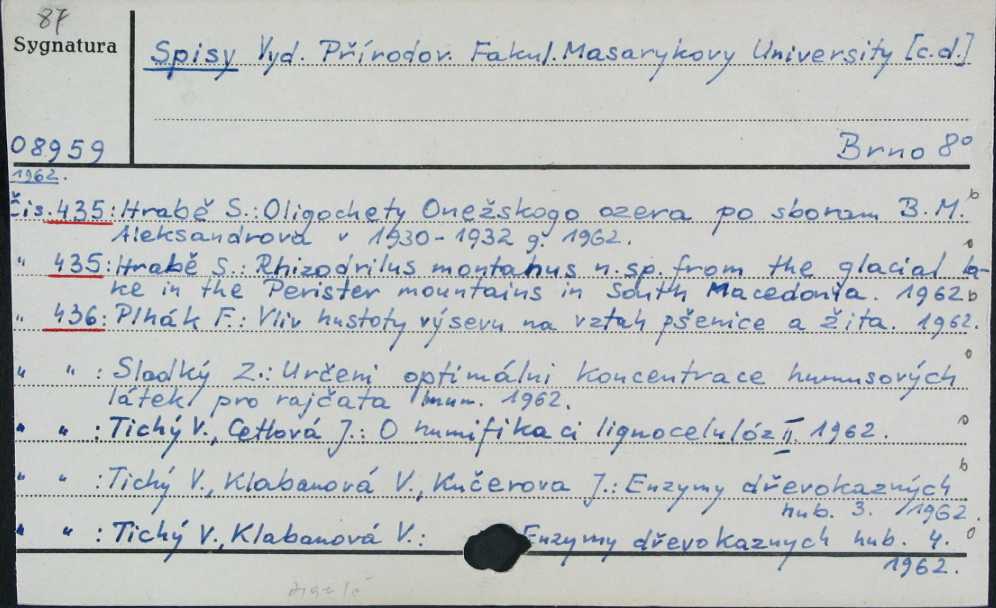 87
Sygnatura
Spisy Vyd. Přírodov. Fakul. Masarykovy University [c.d.]
08959
Brno 8°
1962.
čis. 435: Hrabě S.: Oligochety Onežskogo ozera po sboram B.M.
Aleksandrova v 1930-1932 g. 1962.
" 435: Hrabě S.: Rhizodrilus montanus n. sp. from the glacial la-
ke in the Perister mountains in South Macedonia. 1962
" 436: Plhák F.: Vliv hustoty výsevu na vztah pšenice a žita. 1962.
" " : Sladký Z.: Určeni optimálni koncentrace humusových
látek pro rajčata 1962.
" " : Tichý V., Cetlová J.: O humifikaci lignocelulóz II. 1962.
" " : Tichý V., Klabanová V., Kučerova J.: Enzymy dřevokazných
hub. 3. 1962.
" " : Tichý V., Klabanová V.: Enzymy dřevokaznych hub. 4.
1962.